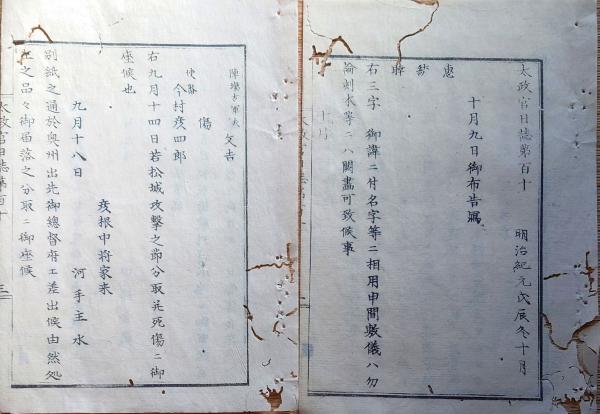 太政官日誌第百十　明治紀元戊辰冬十月
十月九日御布告寫
惠　統　睦
右三字　御諱ニ付名字等ニ相用申間敷儀ハ勿
論刻本等ニハ闕畫可致候事
十月
文吉
傷
使番
今村俊四郎
右九月十四日若松城攻撃之節分取并死傷ニ御
座候也
九月十八日
彦根中將家来
河手主水
別紙之通於奥州出先御總督府エ差出候由然処
之品々御届落之分取ニ御座候
太政官日誌第百十
三